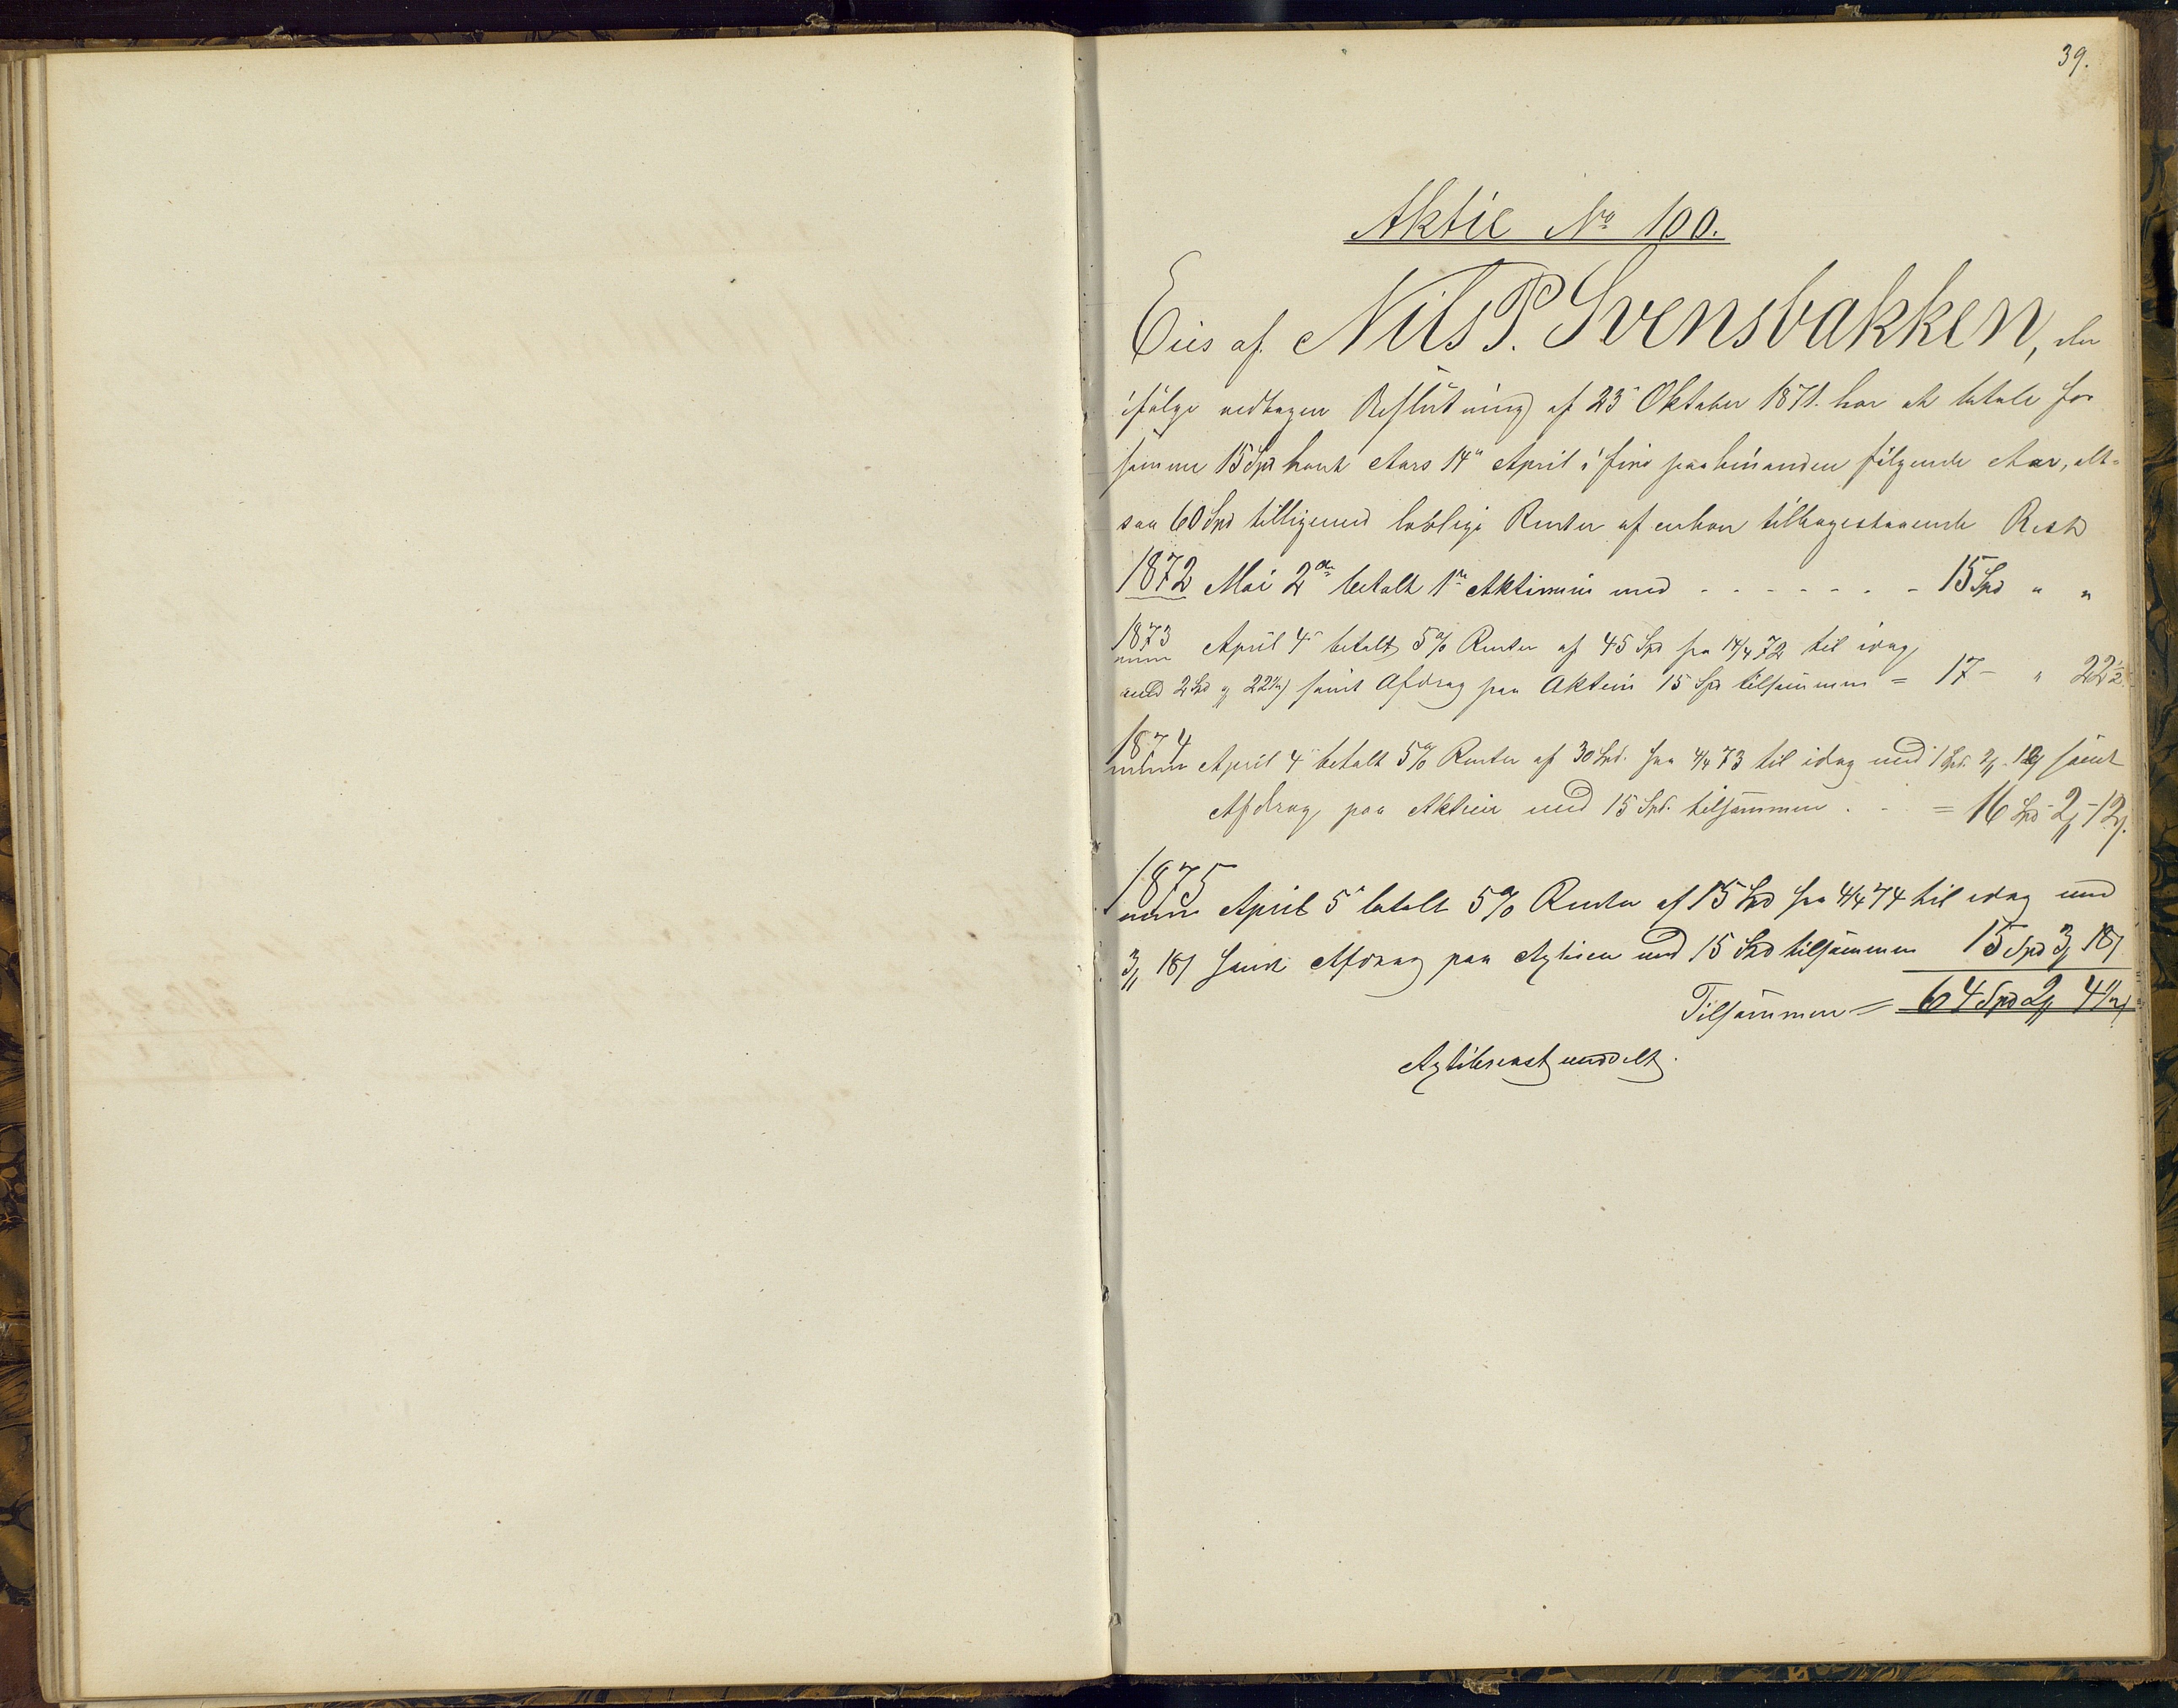 39.
Aktie No 100.
Eies af Nils P. Svensbakken, der
ifølge vedtagen Beslutning af 23 Oktober 1871. har at betale for
samme 15 Spd hvert Aars 14 April i fire paa hinanden følgende Aar, alt-
saa 60 Spd tilligemed lovlige Renter af enhver tilbagestaaende Rest
1872 Mai 2den betalt 1ste Aktietermin med - - - - - - - 15 Spd " "
1873 April 4 betalt 5% Renter af 45 Spd fra 14/4 72 til idag
med 2 Spd 22½ samt Afdrag paa Aktien 15 Spd tilsammen = 17 - " 22½
1874 April 4 betalt 5% Renter af 30 Spd. fra 4/4 73 til idag med 1 Spd. 2 - 12 samt
Afdrag paa Aktien med 15 Spd. tilsammen . - = 16 Spd - 2 - 12
1875 April 5 betalt 5% Renter af 15 Spd fra 4/4 74 til idag med
3 18 samt Afdrag paa Agtien med 15 Spd tilsammen 15 Spd 3 18
Tilsammen = 64 Spd 2 4½
Agtiebrevet uddelt.